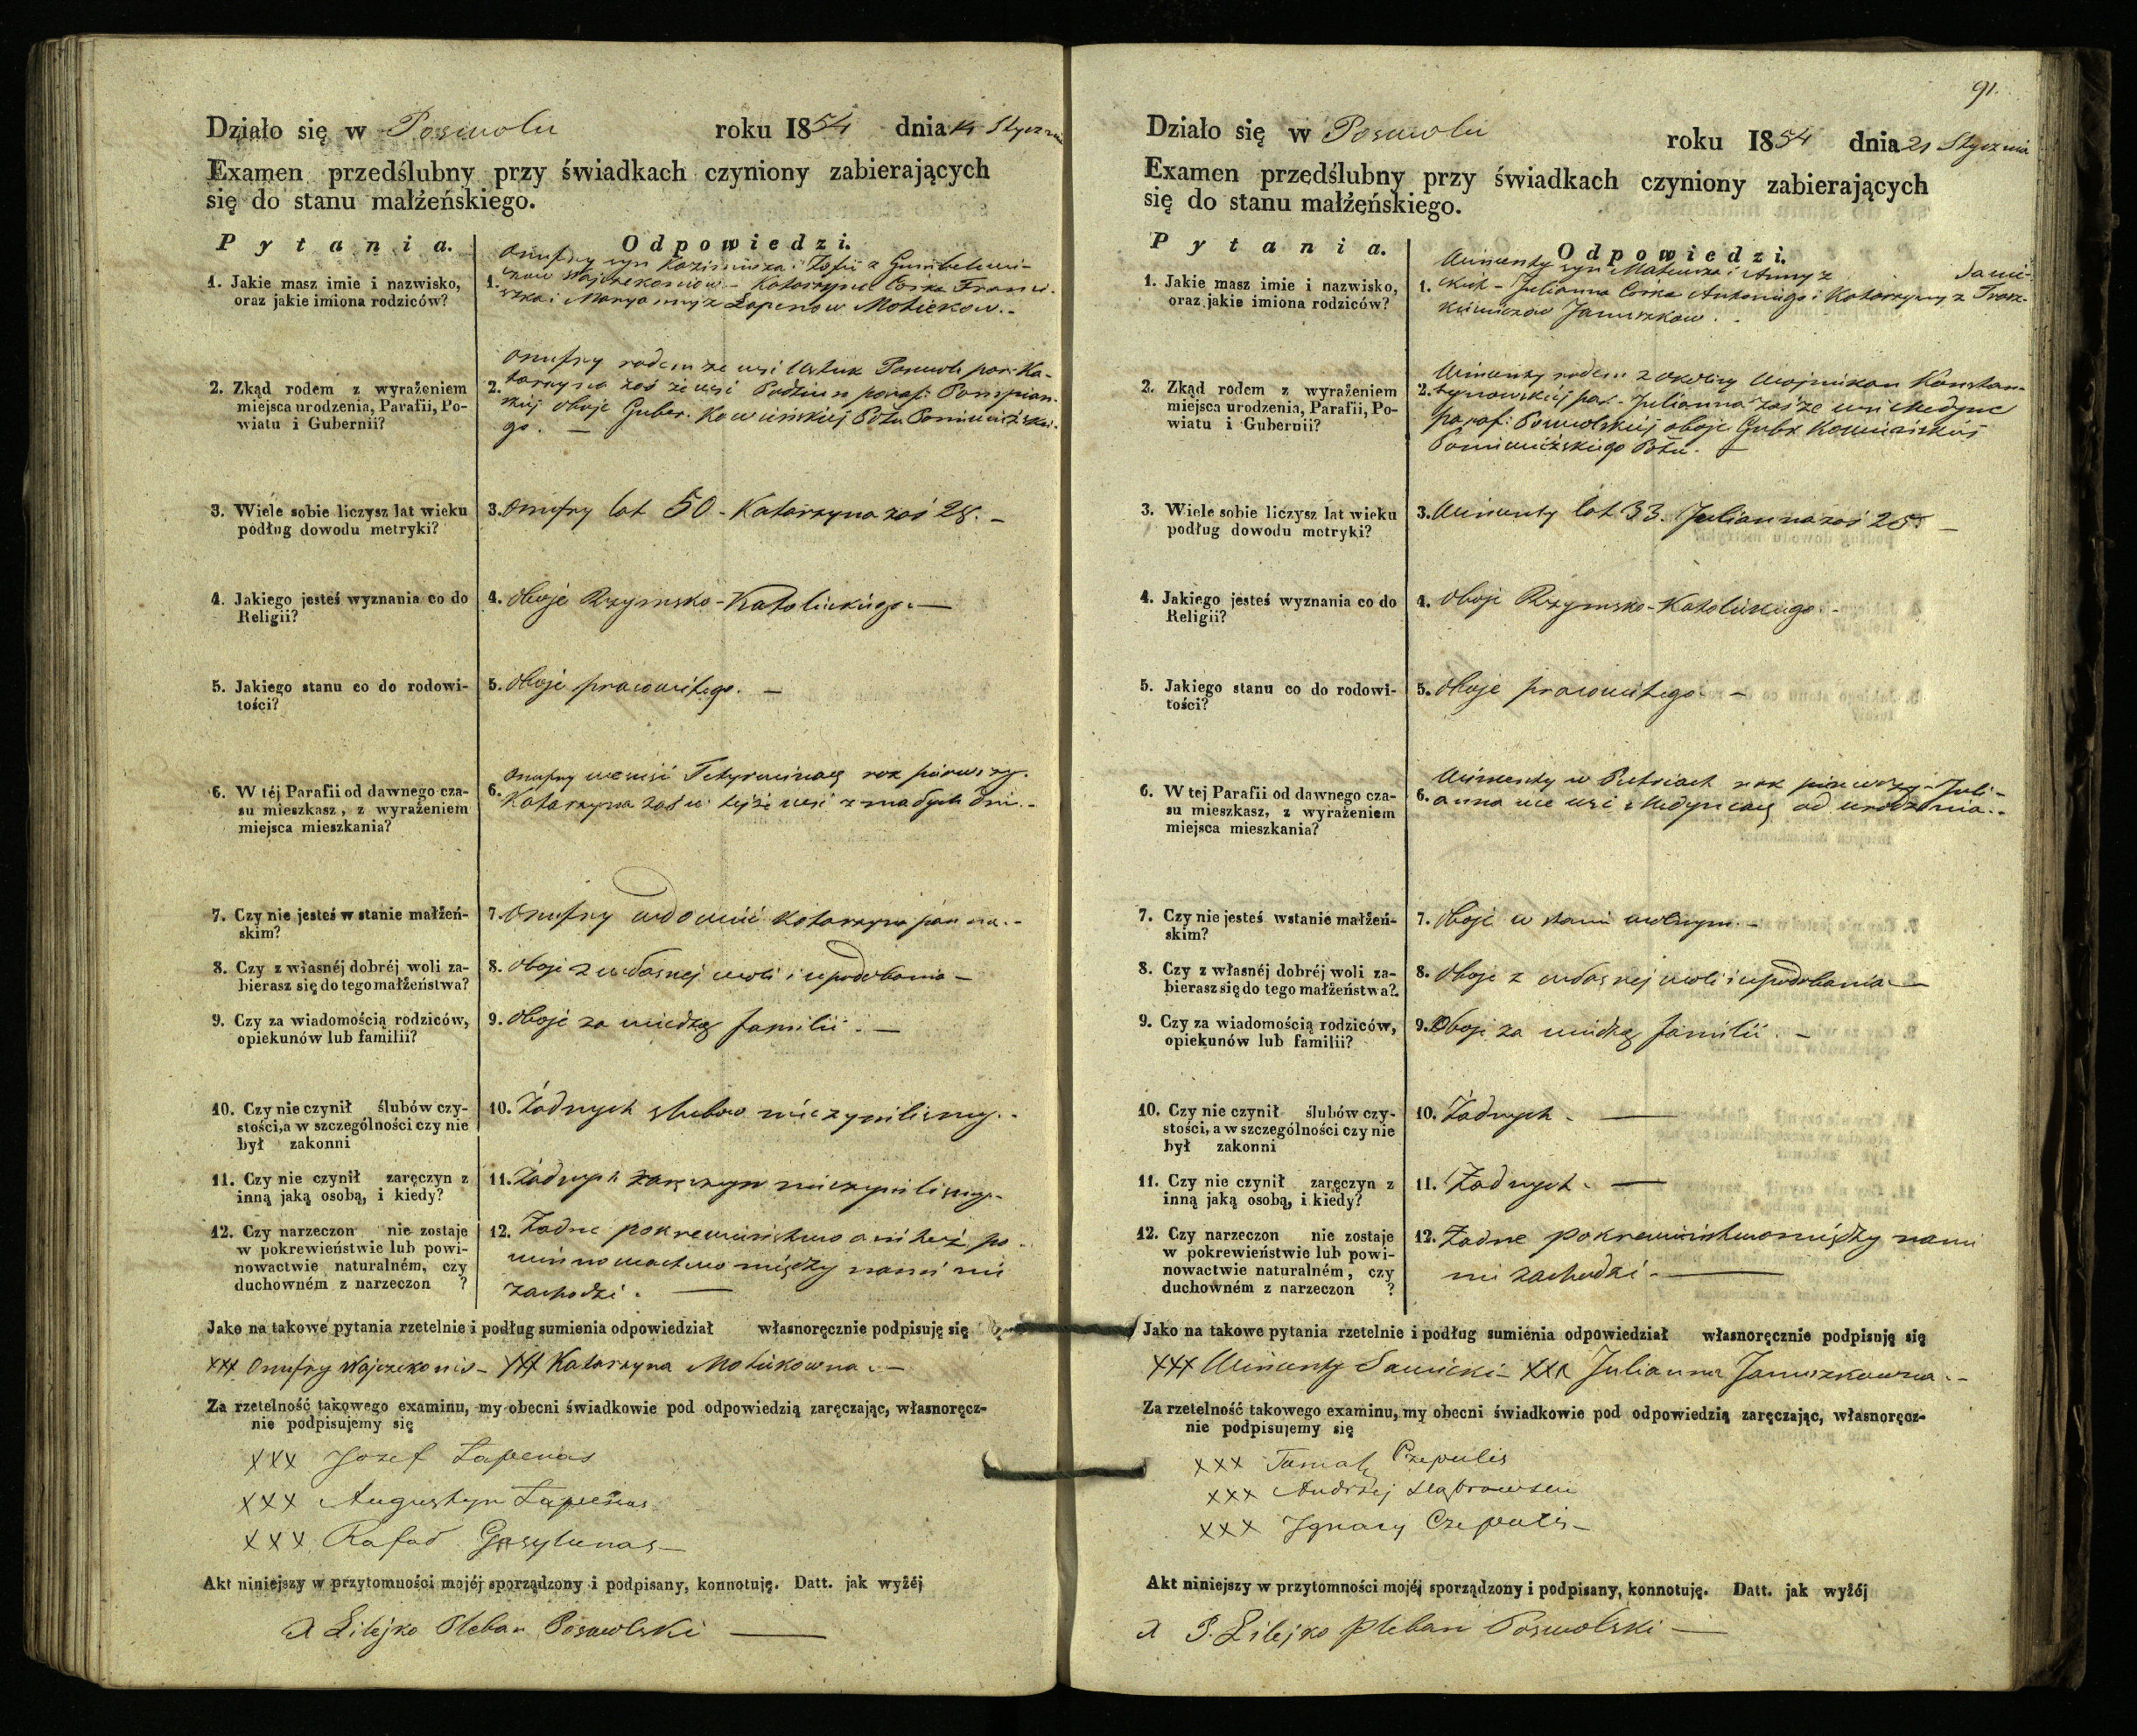 Działo się w Poswolu roku 1854 dnia 14 Stycznia
Examen przedślubny przy świadkach czyniony zabierających
się do stanu małżeńskiego.
Pytania. Odpowiedzi.
1. Jakie masz imie i nazwisko,
oraz jakie imiona rodziców?
Onufry syn Kazimierza i Zofii z Gumbelewi-
1. czow Wajczekoniow - Katarzyna Corka Franci-
szka i Maryanny z Łapenow Motiekow. -
2. Zkąd rodem z wyrażeniem
miejsca urodzenia, Parafii, Po-
wiatu i Gubernii?
Onufry rodem ze wsi Ustuk Poswol. par. Ka-
2. tarzyna zaś ze wsi Pudziun paraf: Poniewian-
skiej oboje Guber. Kowieńskiej Połu Poniewieżskie-
go. -
3. Wiele sobie liczysz lat wieku
podług dowodu metryki?
3. Onufry lat 50 - Katarzyna zaś 28. -
4. Jakiego jesteś wyznania co do
Religii?
4. Oboje Rzymsko-Katolickiego. -
5. Jakiego stanu co do rodowi-
tości?
5. Oboje pracowitego. -
6. W téj Parafii od dawnego cza-
su mieszkasz, z wyrażeniem
miejsca mieszkania?
Onufry we wsi Tetyrwinach rok pierwszy.
6. Katarzyna zaś w tejże wsi z małych dni. -
7. Czy nie jesteś w stanie małżeń-
skim?
7. Onufry wdowiec Katarzyna panna. -
8. Czy z własnéj dobréj woli za-
bierasz się do tego małżeństwa?
8. Oboje z własnej woli i upodobania -
9. Czy za wiadomością rodziców,
opiekunów lub familii?
9. Oboje za wiedzą familii. -
10. Czy nie czynił ślubów czy-
stości, a w szczególności czy nie
był zakonni
10. Żadnych slubow nieczynilismy. -
11. Czy nie czynił zaręczyn z
inną jaką osobą, i kiedy?
11. Żadnych zaręczyn nieczynilismy. -
12. Czy narzeczon nie zostaje
w pokrewieństwie lub powi-
nowactwie naturalném, czy
duchowném z narzeczon ?
12. Żadne pokrewieństwo ani też po-
winnowactwo między nami nie
zachodzi. -
Jako na takowe pytania rzetelnie i podług sumienia odpowiedział własnoręcznie podpisuję się
XXX Onufry Wajczekonis - XXX Katarzyna Motiekowna. -
Za rzetelność takowego examinu, my obecni świadkowie pod odpowiedzią zaręczając, własnoręcz-
nie podpisujemy się
XXX Jozef Łapenas
XXX Augustyn Łapenas
XXX Rafał Gasylunas -
Akt niniejszy w przytomności mojéj sporządzony i podpisany, konnotuję. Datt. jak wyżéj
X Lilejko Pleban Poswolski -
91.
Działo się w Poswolu roku 1854 dnia 21 Stycznia
Examen przedślubny przy świadkach czyniony zabierających
się do stanu małżeńskiego.
Pytania. Odpowiedzi.
1. Jakie masz imie i nazwisko,
oraz jakie imiona rodziców?
Wincenty syn Mateusza i Anny z Sawi-
1. ckich - Julianna Corka Antoniego i Katarzyny z Trosz-
kiewiczow Januszkow. -
2. Zkąd rodem z wyrażeniem
miejsca urodzenia, Parafii, Po-
wiatu i Gubernii?
Wincenty rodem z okolicy Wojnikan Konstan-
2. tynowskiej par. - Julianna zaś ze wsi Medyne
paraf: Poswolskiej oboje Gubr Kowieńskiej
Poniewieżskiego Połu. -
3. Wiele sobie liczysz lat wieku
podług dowodu metryki?
3. Wincenty lat 33. Julianna zaś 25 -
4. Jakiego jesteś wyznania co do
Religii?
4. Oboje Rzymsko-Katolickiego. -
5. Jakiego stanu co do rodowi-
tości?
5. Oboje pracowitego. -
6. W tej Parafii od dawnego cza-
su mieszkasz, z wyrażeniem
miejsca mieszkania?
Wincenty w Putriach rok pierwszy - Juli-
6. anna we wsi Medyniach od urodzenia. -
7. Czy nie jesteś wstanie małżeń-
skim?
7. Oboje w stanie wolnym. -
8. Czy z własnéj dobréj woli za-
bierasz się do tego małżeństwa?
8. Oboje z własnej woli i upodobania -
9. Czy za wiadomością rodziców,
opiekunów lub familii?
9. Oboje za wiedzą familii. -
10. Czy nie czynił ślubów czy-
stości, a w szczególności czy nie
był zakonni
10. Żadnych. -
11. Czy nie czynił zaręczyn z
inną jaką osobą, i kiedy?
11. Żadnych. -
12. Czy narzeczon nie zostaje
w pokrewieństwie lub powi-
nowactwie naturalném, czy
duchowném z narzeczon ?
12. Żadne pokrewieństwo między nami
nie zachodzi. -
Jako na takowe pytania rzetelnie i podług sumienia odpowiedział własnoręcznie podpisuję się
XXX Wincenty Sawicki - XXX Julianna Januszkowna. -
Za rzetelność takowego examinu, my obecni świadkowie pod odpowiedzią zaręczając, własnoręcz-
nie podpisujemy się
XXX Tomasz Czepulis
XXX Andrzej Dąbrowski
XXX Ignacy Czepulis -
Akt niniejszy w przytomności mojéj sporządzony i podpisany, konnotuję. Datt. jak wyżéj
X P. Lilejko Pleban Poswolski -